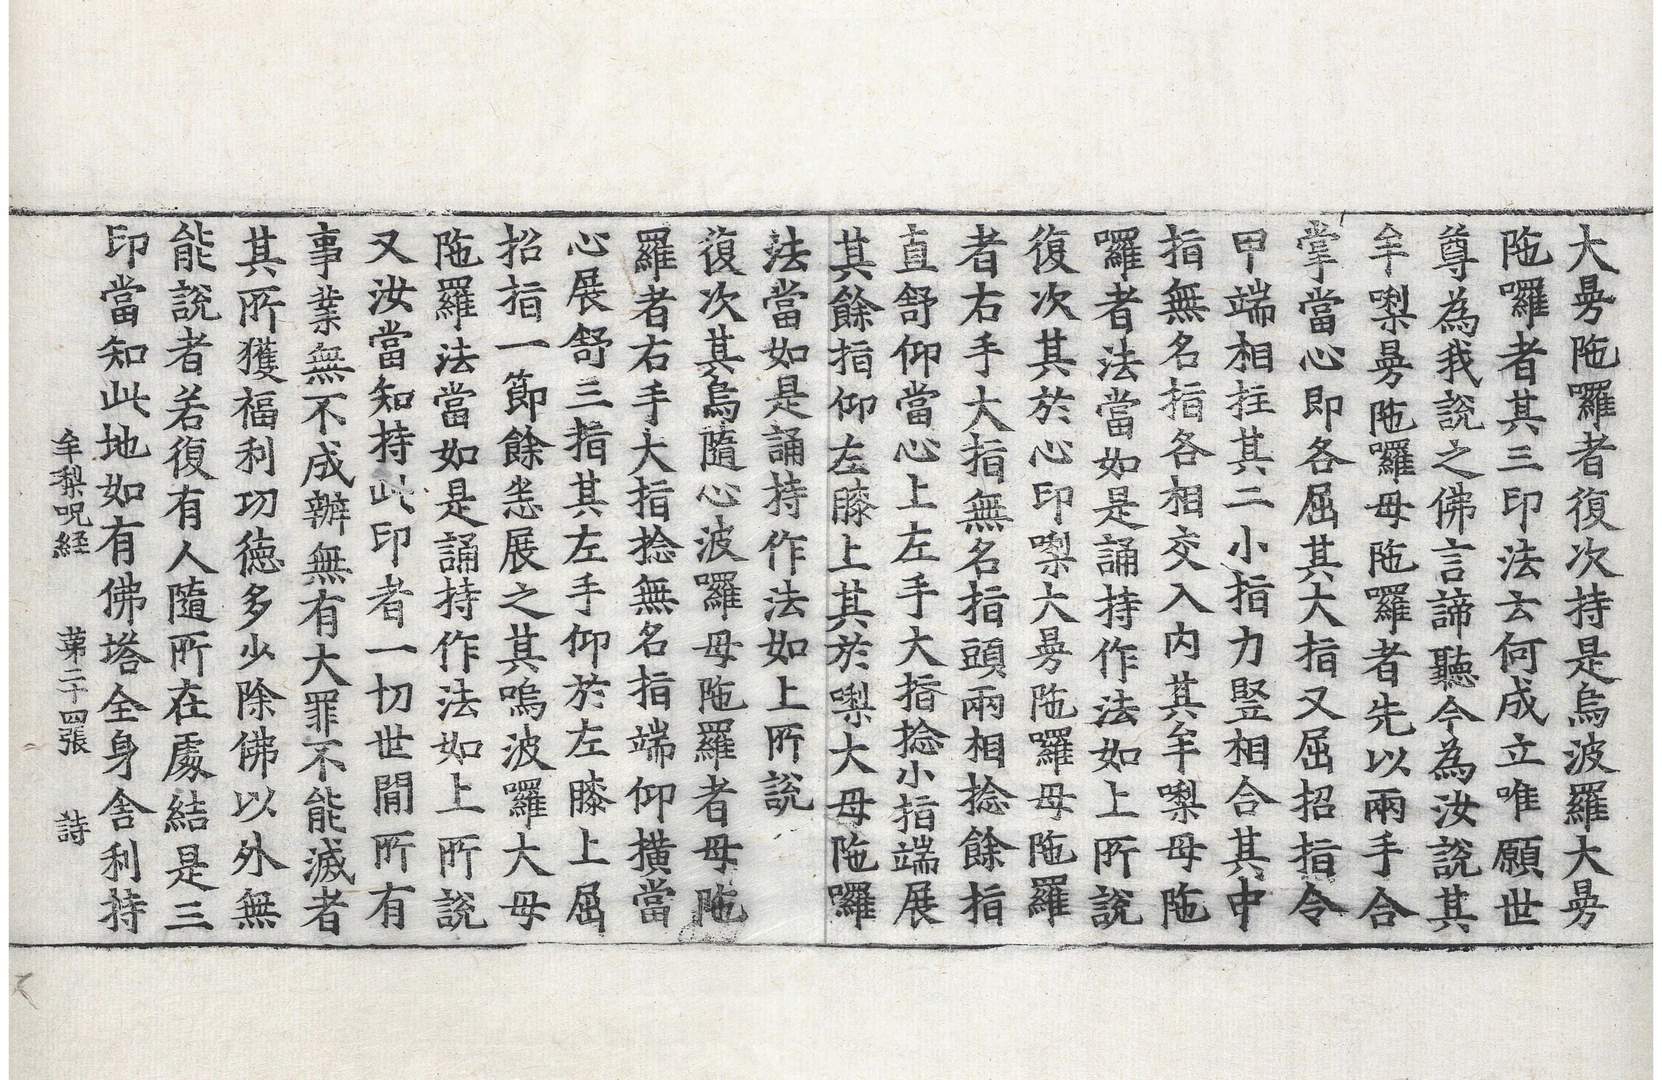 大㬅陁囉者復次持是烏波羅大㬅
陁囉者其三印法云何成立唯願世
尊為我說之佛言諦聽今為汝說其
牟㗚㬅陁囉母陁囉者先以兩手合
掌當心即各屈其大指又屈招指令
甲端相拄其二小指力竪相合其中
指無名指各相交入內其牟㗚母陁
囉者法當如是誦持作法如上所說
復次其於心印㗚大㬅陁囉母陁羅
者右手大指無名指頭兩相捻餘指
直舒仰當心上左手大指捻小指端展
其餘指仰左膝上其於㗚大母陁囉
法當如是誦持作法如上所說
復次其烏隨心波囉母陁羅者母陁
羅者右手大指捻無名指端仰橫當
心展舒三指其左手仰於左膝上屈
招指一節餘悉展之其嗚波囉大母
陁羅法當如是誦持作法如上所說
又汝當知持此印者一切世閒所有
事業無不成辦無有大罪不能滅者
其所獲福利功德多少除佛以外無
能說者若復有人隨所在處結是三
印當知此地如有佛塔全身舍利持
牟梨呪経 苐二十四張 詩